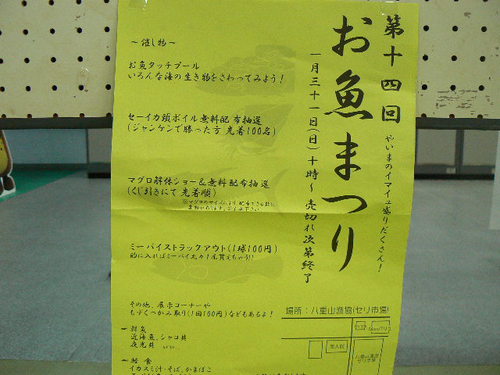 第十四回
お魚まつり
やいまのイマイユ盛りだくさん!
一月三十一日(日)十時~売切れ次第終了
~催し物~
お魚タッチプール
いろんな海の生き物をさわってみよう!
セーイカ頭ボイル無料配布抽選
(ジャンケンで勝った方 先着100名)
マグロ解体ショー&無料配布抽選
(くじ引きにて先着順)
ミーバイストラックアウト(1球100円)
その他、展示コーナーや
もずくつかみ取り(1回100円)などもあるよ!
場所:八重山漁協(セリ市場)
近海魚、シャコ貝
夜光貝
軽食
イカスミ汁・そば、かまぼこ